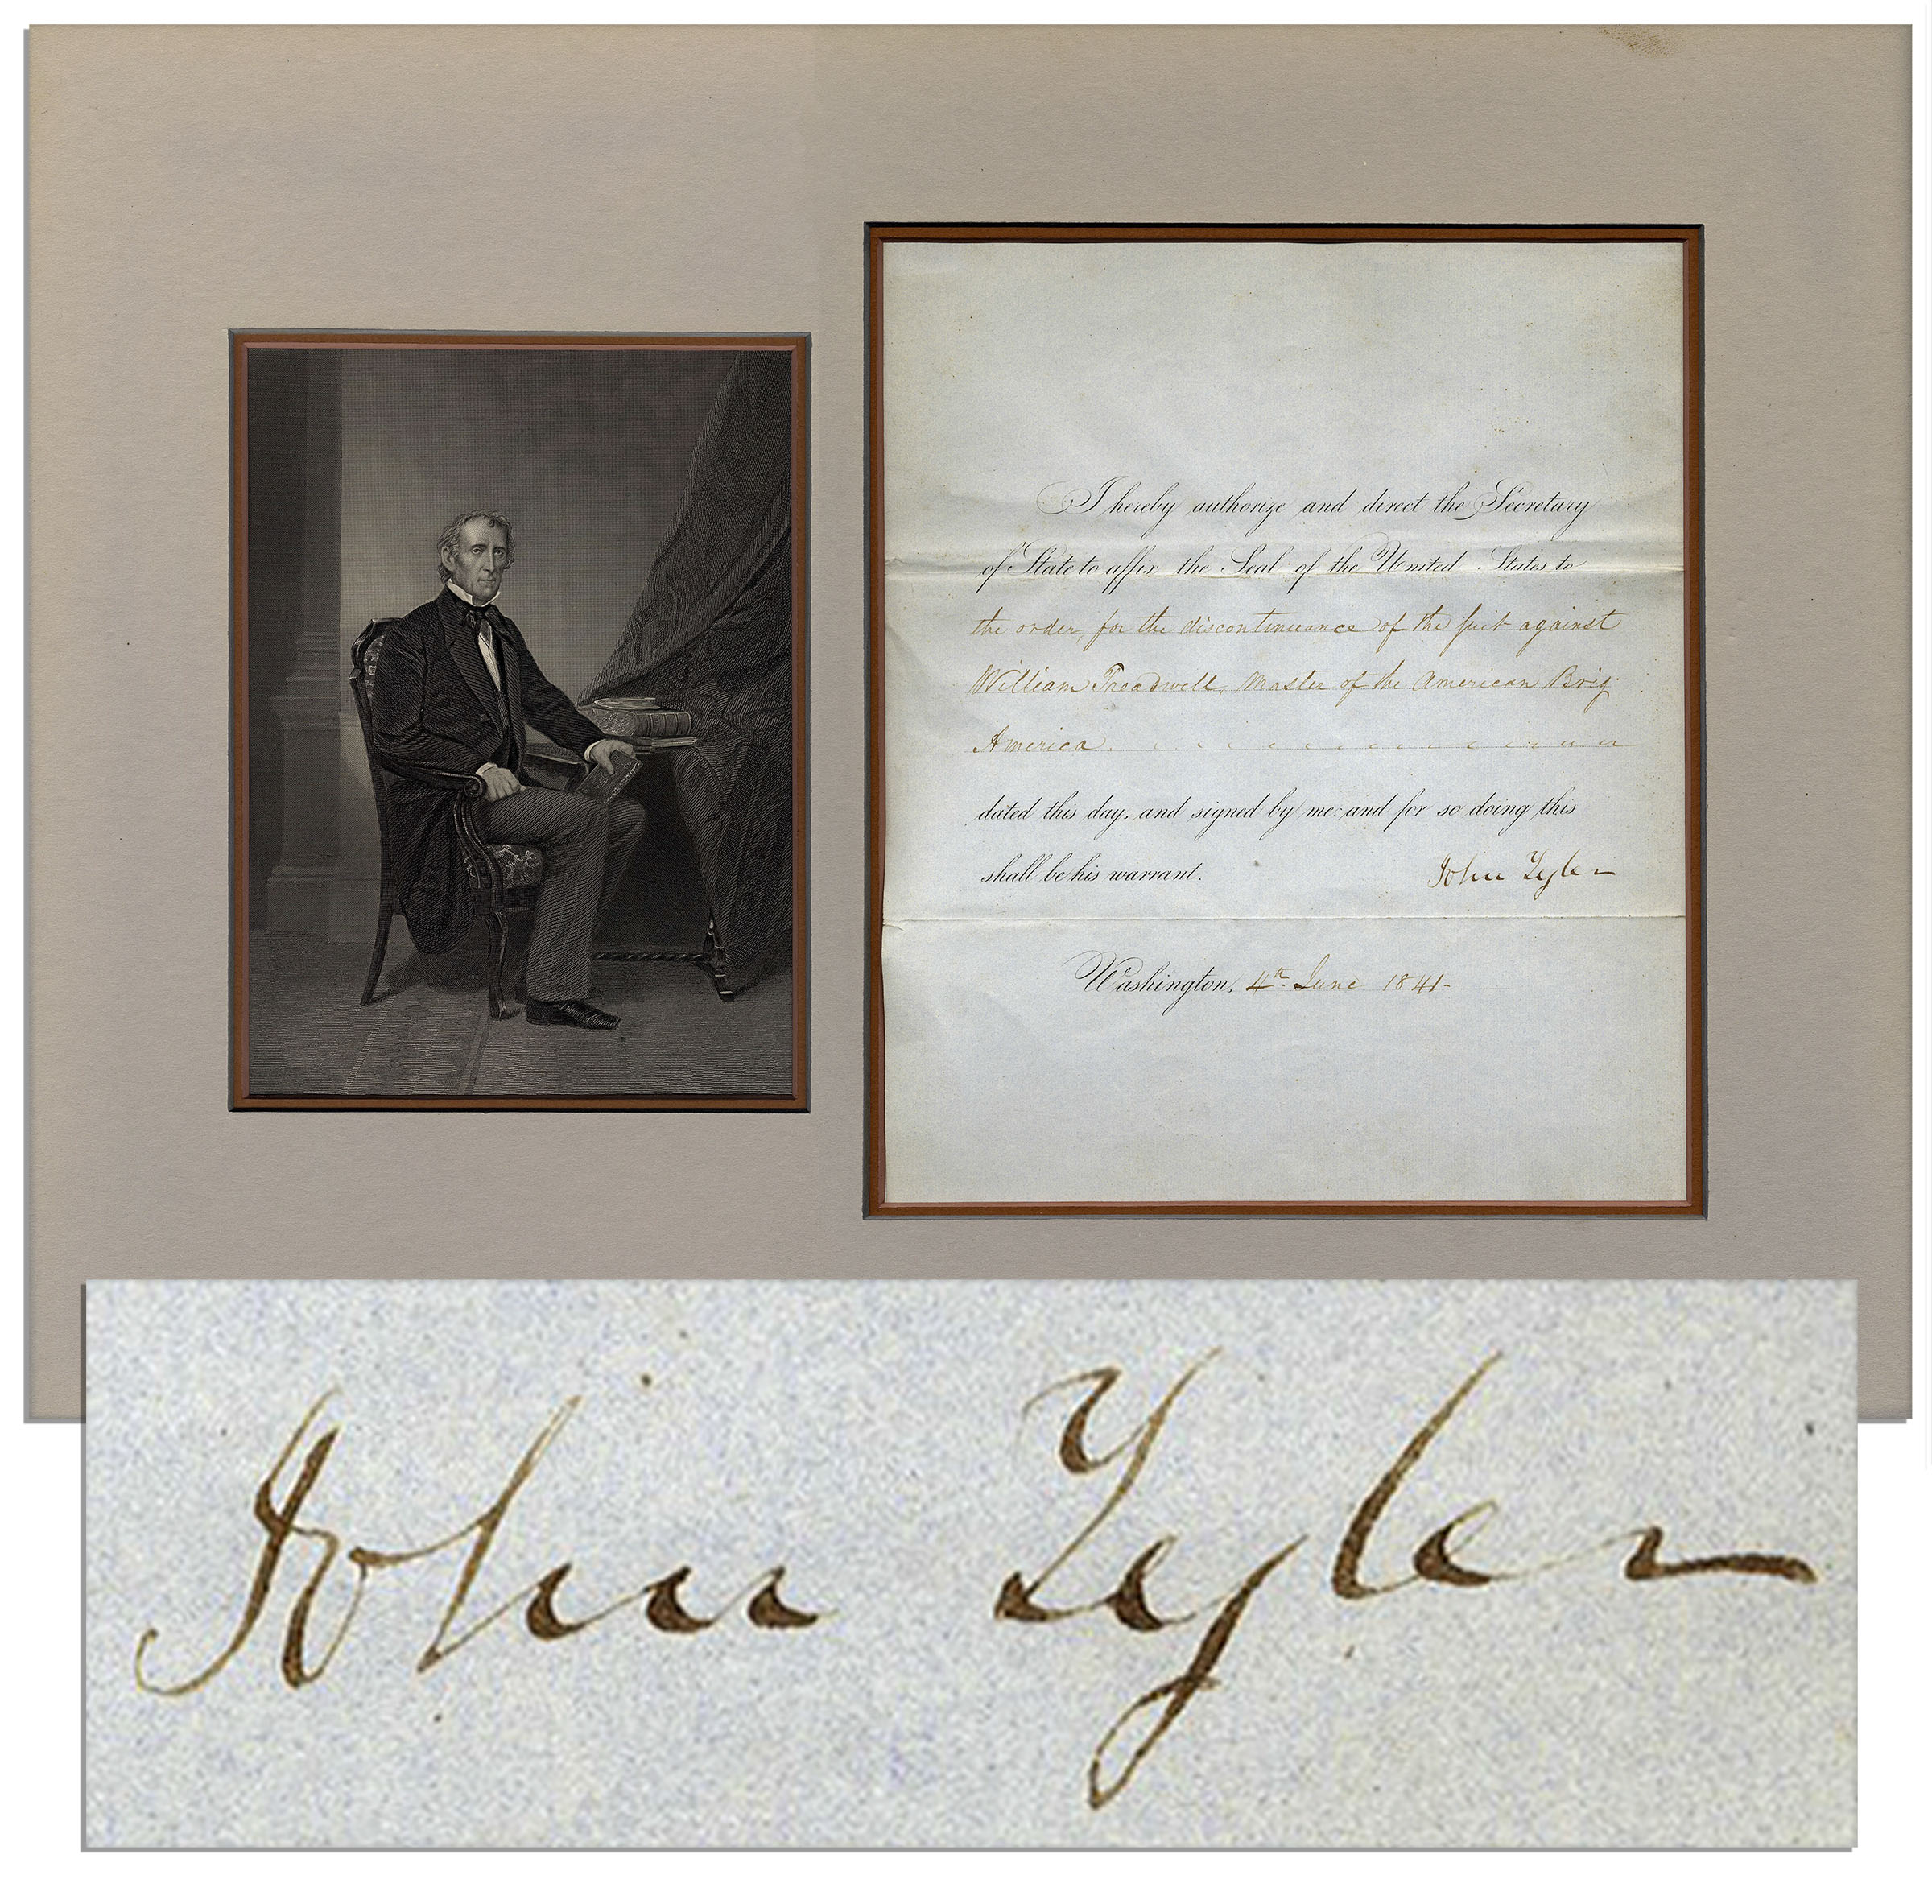 I hereby authorize and direct the Secretary
of State to affix the Seal of the United States to
the order, for the discontinuance of the suit against
William Treadwell, Master of the American Brig
America.
dated this day, and signed by me: and for so doing this
shall be his warrant. John Tyler
Washington, 4th June 1841-
John Tyler